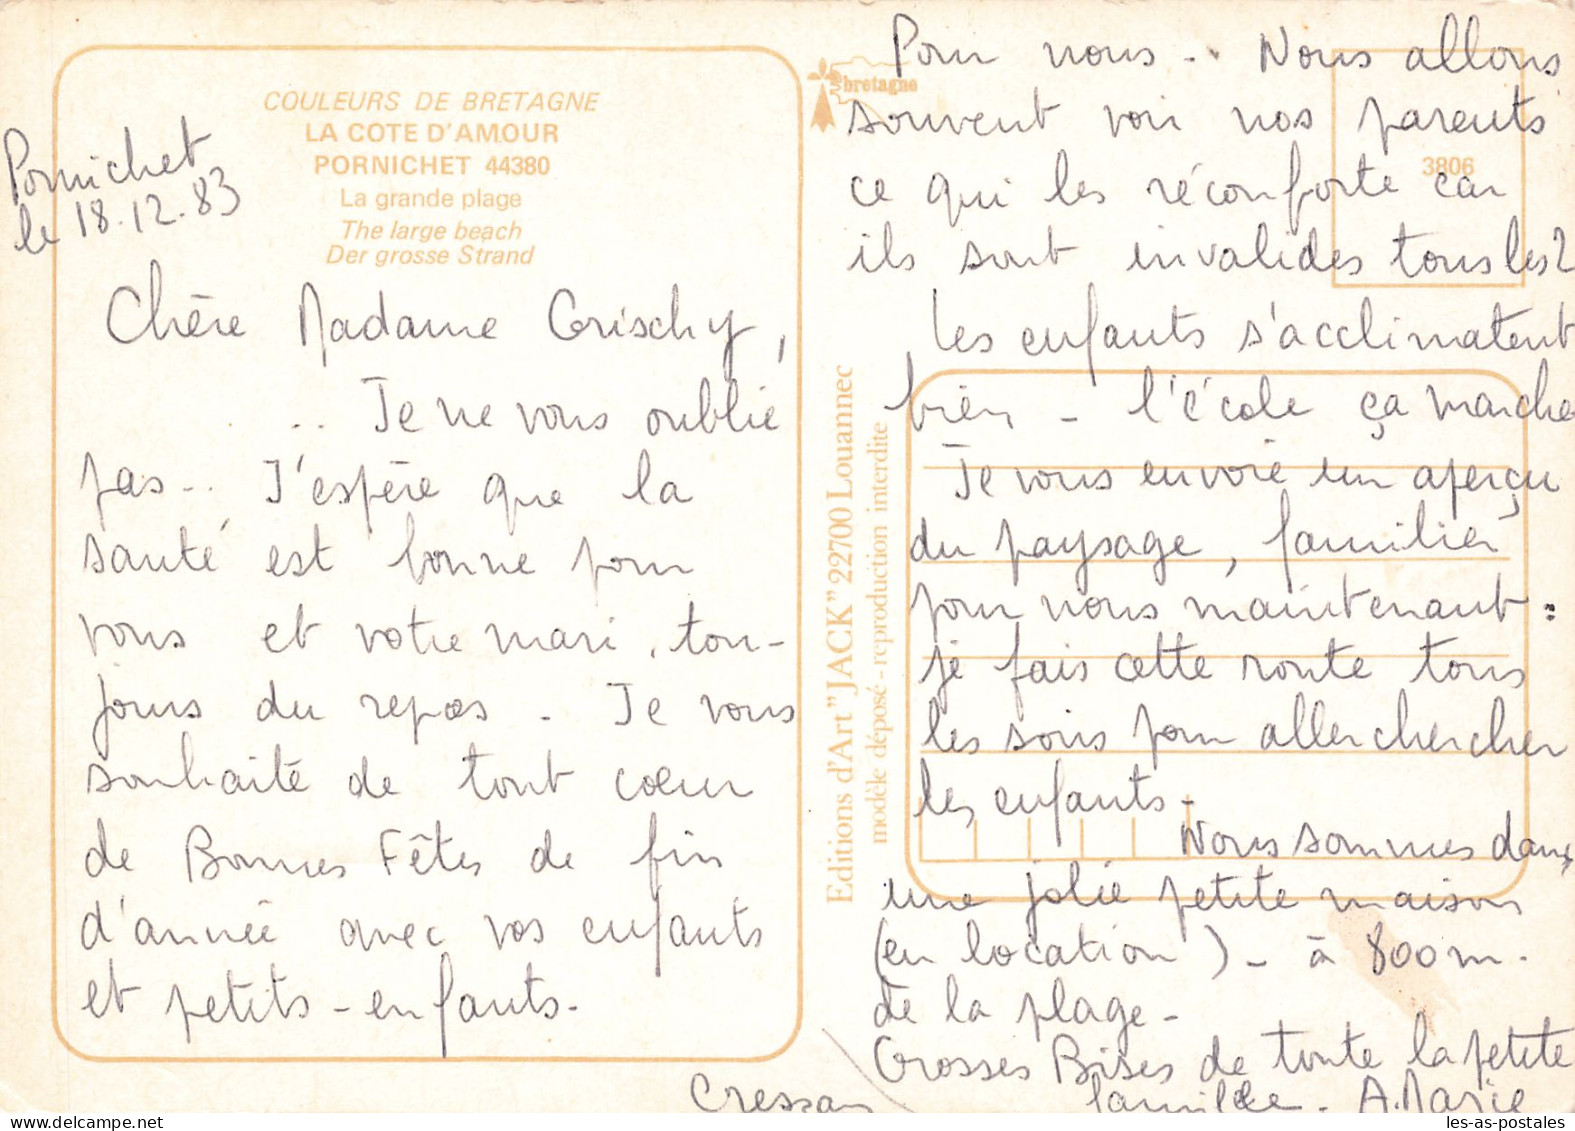 COULEURS DE BRETAGNE
LA COTE D'AMOUR
PORNICHET 44380
La grande plage
The large beach
Der grosse Strand
Pornichet
le 18.12.83
Chère Madame Grischy,
.. Je ne vous oublie
pas.. J'espère que la
santé est bonne pour
vous et votre mari, tou-
jours du repos - Je vous
souhaite de tout cœur
de Bonnes Fêtes de fin
d'année avec vos enfants
et petits-enfants.
bretagne
3806
Editions d'Art "JACK" 22700 Louannec
modèle déposé - reproduction interdite
Pour nous.. Nous allons
souvent voir nos parents
ce qui les réconforte car
ils sont invalides tous les 2
Les enfants s'acclimatent
bien - l'école ça marche
Je vous envoie un aperçu
du paysage, familier
pour nous maintenant :
je fais cette route tous
les soirs pour aller chercher
les enfants -
Nous sommes dans
une jolie petite maison
(en location) - à 800m.
de la plage -
Grosses Bises de toute la petite
famille. A.Marie
Cressan
les-as-postales